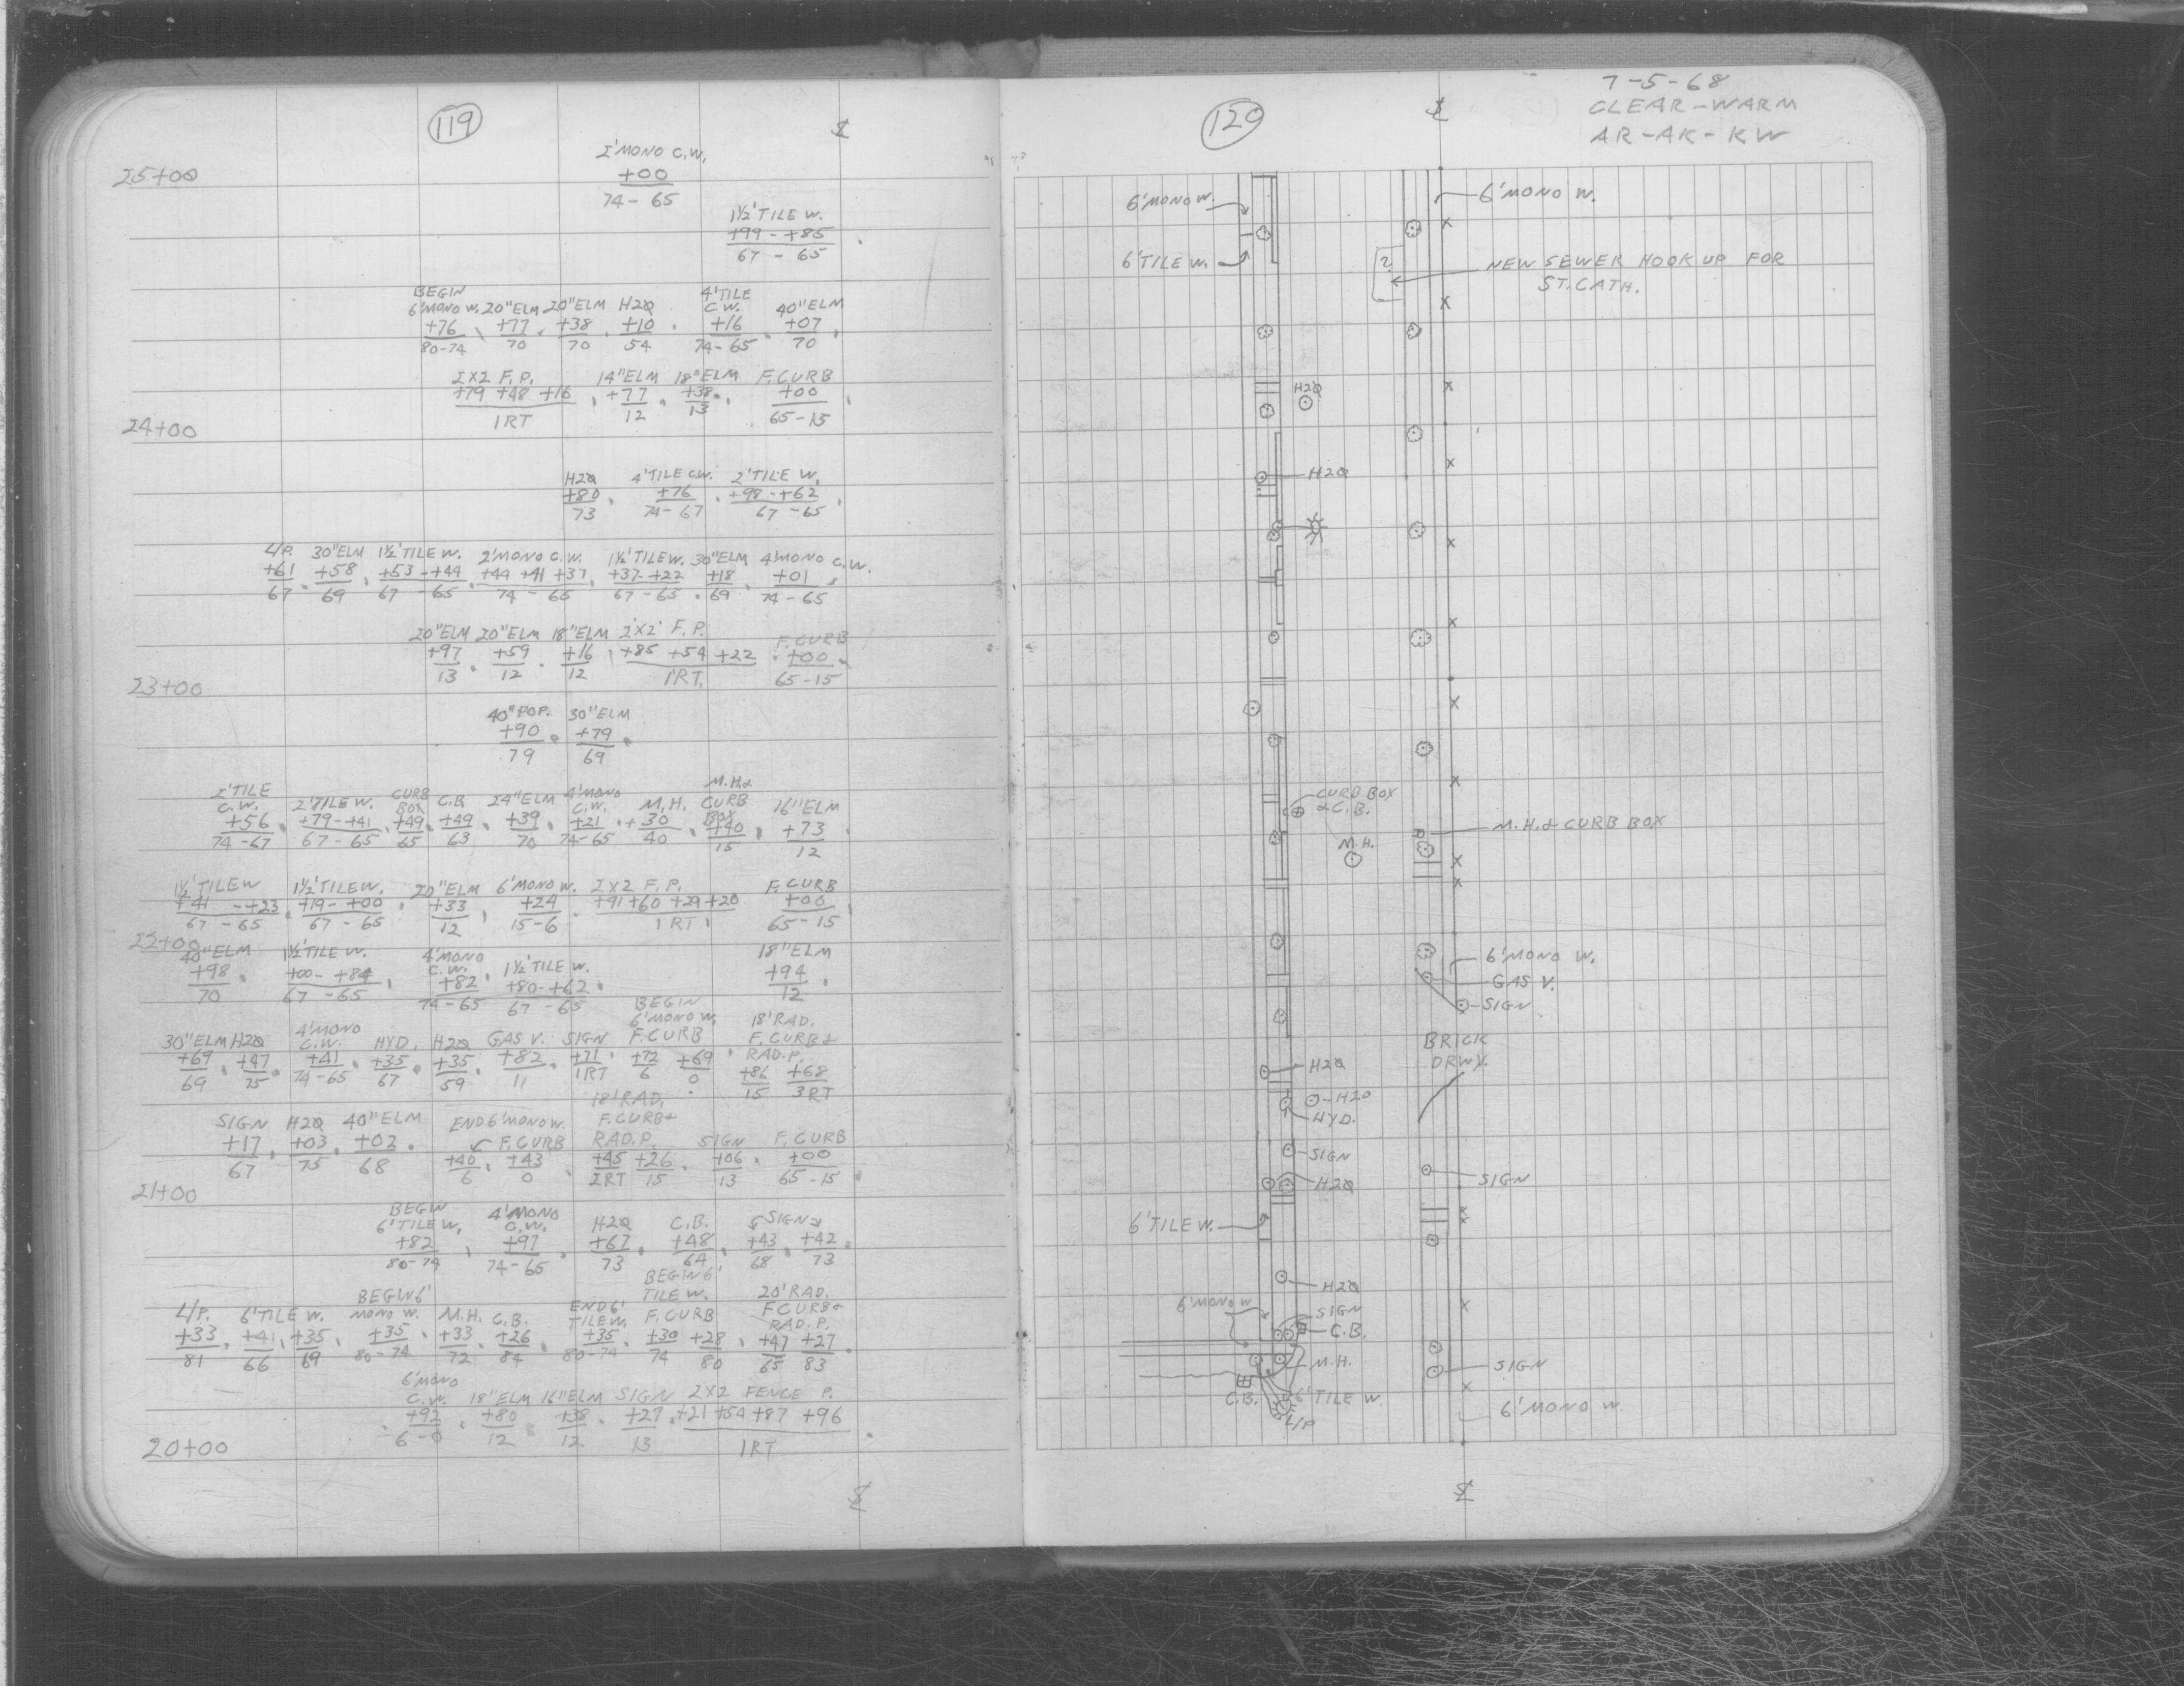 119
℄
2'MONO C.W.
25+00 +00
74-65
1½'TILE W.
+99-+85
67-65
BEGIN 4'TILE
6'MONO W. 20"ELM 20"ELM H2O C.W. 40"ELM
+76 +77 +38 +10 +16 +07
80-74 70 70 54 74-65 70
2X2 F.P. 14"ELM 18"ELM F.CURB
+79 +48 +16 +77 +38 +00
1RT 12 13 65-15
24+00
H2O 4'TILE C.W. 2'TILE W.
+80 +76 +98-+62
73 74-67 67-65
L/P. 30"ELM 1½'TILE W. 2'MONO C.W. 1½'TILE W. 30"ELM 4'MONO C.W.
+61 +58 +53-+44 +44 +41 +37 +37-+22 +18 +01
67 69 67-65 74-65 67-65 69 74-65
20"ELM 20"ELM 18"ELM 2'X2' F.P. F.CURB
+97 +59 +16 +85 +54 +22 +00
13 12 12 1'RT. 65-15
23+00
40"POP. 30"ELM
+90 +79
79 69
2'TILE CURB 4'MONO M.H.&
C.W. 2'TILE W. BOX C.B. 24"ELM C.W. M.H. CURB BOX 16"ELM
+56 +79-+41 +49 +49 +39 +21 +30 +40 +73
74-67 67-65 65 63 70 74-65 40 15 12
1½'TILE W 1½'TILE W. 20"ELM 6'MONO W. 2X2 F.P. F.CURB
+41-+23 +19-+00 +33 +24 +91 +60 +29 +20 +00
67-65 67-65 12 15-6 1RT 65-15
22+00
40"ELM 1½'TILE W. 4'MONO C.W. 1½'TILE W. 18"ELM
+98 +00-+84 +82 +80-+62 +94
70 67-65 74-65 67-65 12
BEGIN
4'MONO 6'MONO W. 18'RAD.
30"ELM H2O C.W. HYD. H2O GAS V. SIGN F.CURB F.CURB& RAD.P.
+69 +47 +41 +35 +35 +82 +71 +72 +69 +86 +68
69 75 74-65 67 59 11 1RT 6 0 15 3RT
18'RAD.
SIGN H2O 40"ELM END 6'MONO W. F.CURB&
F.CURB RAD.P. SIGN F.CURB
+17 +03 +02 +40 +43 +45 +26 +06 +00
67 75 68 6 0 2RT 15 13 65-15
21+00
BEGIN 4'MONO
6'TILE W. C.W. H2O C.B. SIGN
+82 +97 +67 +48 +43 +42
80-74 74-65 73 64 68 73
BEGIN 6'
BEGIN 6' END 6' TILE W. 20'RAD.
L/P. 6'TILE W. MONO W. M.H. C.B. TILE W. F.CURB F.CURB& RAD.P.
+33 +41 +35 +35 +33 +26 +35 +30 +28 +47 +27
81 66 69 80-74 72 84 80-74 74 80 65 83
6'MONO
C.W. 18"ELM 16"ELM SIGN 2X2 FENCE P.
+92 +80 +38 +29 +21 +54 +87 +96
6-0 12 12 13 1RT
20+00
℄
120
℄
7-5-68
CLEAR-WARM
AR-AK-KW
6'MONO W. 6'MONO W.
6'TILE W. ? NEW SEWER HOOK UP FOR
ST.CATH.
H2O
H2O
CURB BOX
& C.B.
M.H. & CURB BOX
M.H.
6'MONO W.
GAS V.
SIGN
BRICK
DRWY.
H2O
H2O
HYD.
SIGN
SIGN
H2O
6'TILE W.
H2O
6'MONO W
SIGN
C.B.
M.H. SIGN
C.B. 6'TILE W.
6'MONO W.
L/P
℄